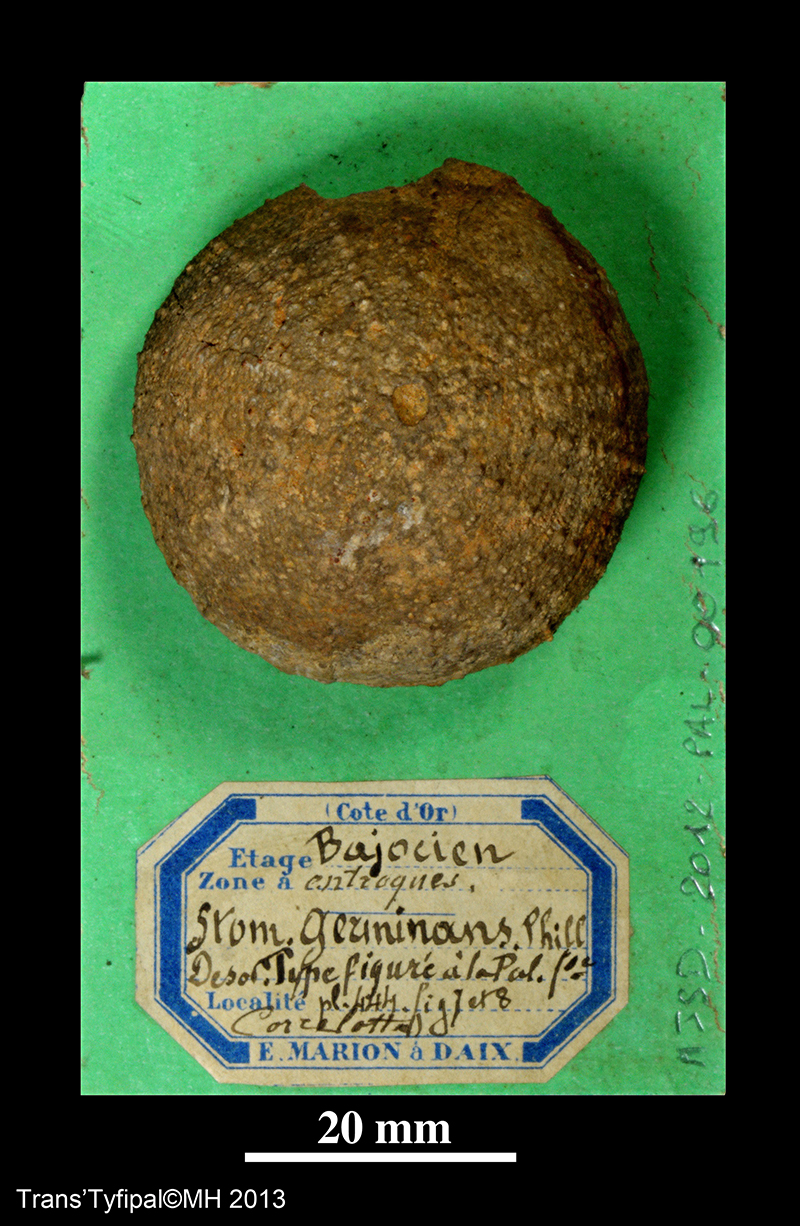 (Cote d'Or)
Etage Bajocien
Zone à entroques.
Stom. Germinans. Phill
Desor. Type figuré à la Pal. fse
Localité pl. 444. fig 7 et 8
Corcelotte
E. MARION à DAIX.
MJSD-2012-PAL-00196
20 mm
Trans'Tyfipal©MH 2013